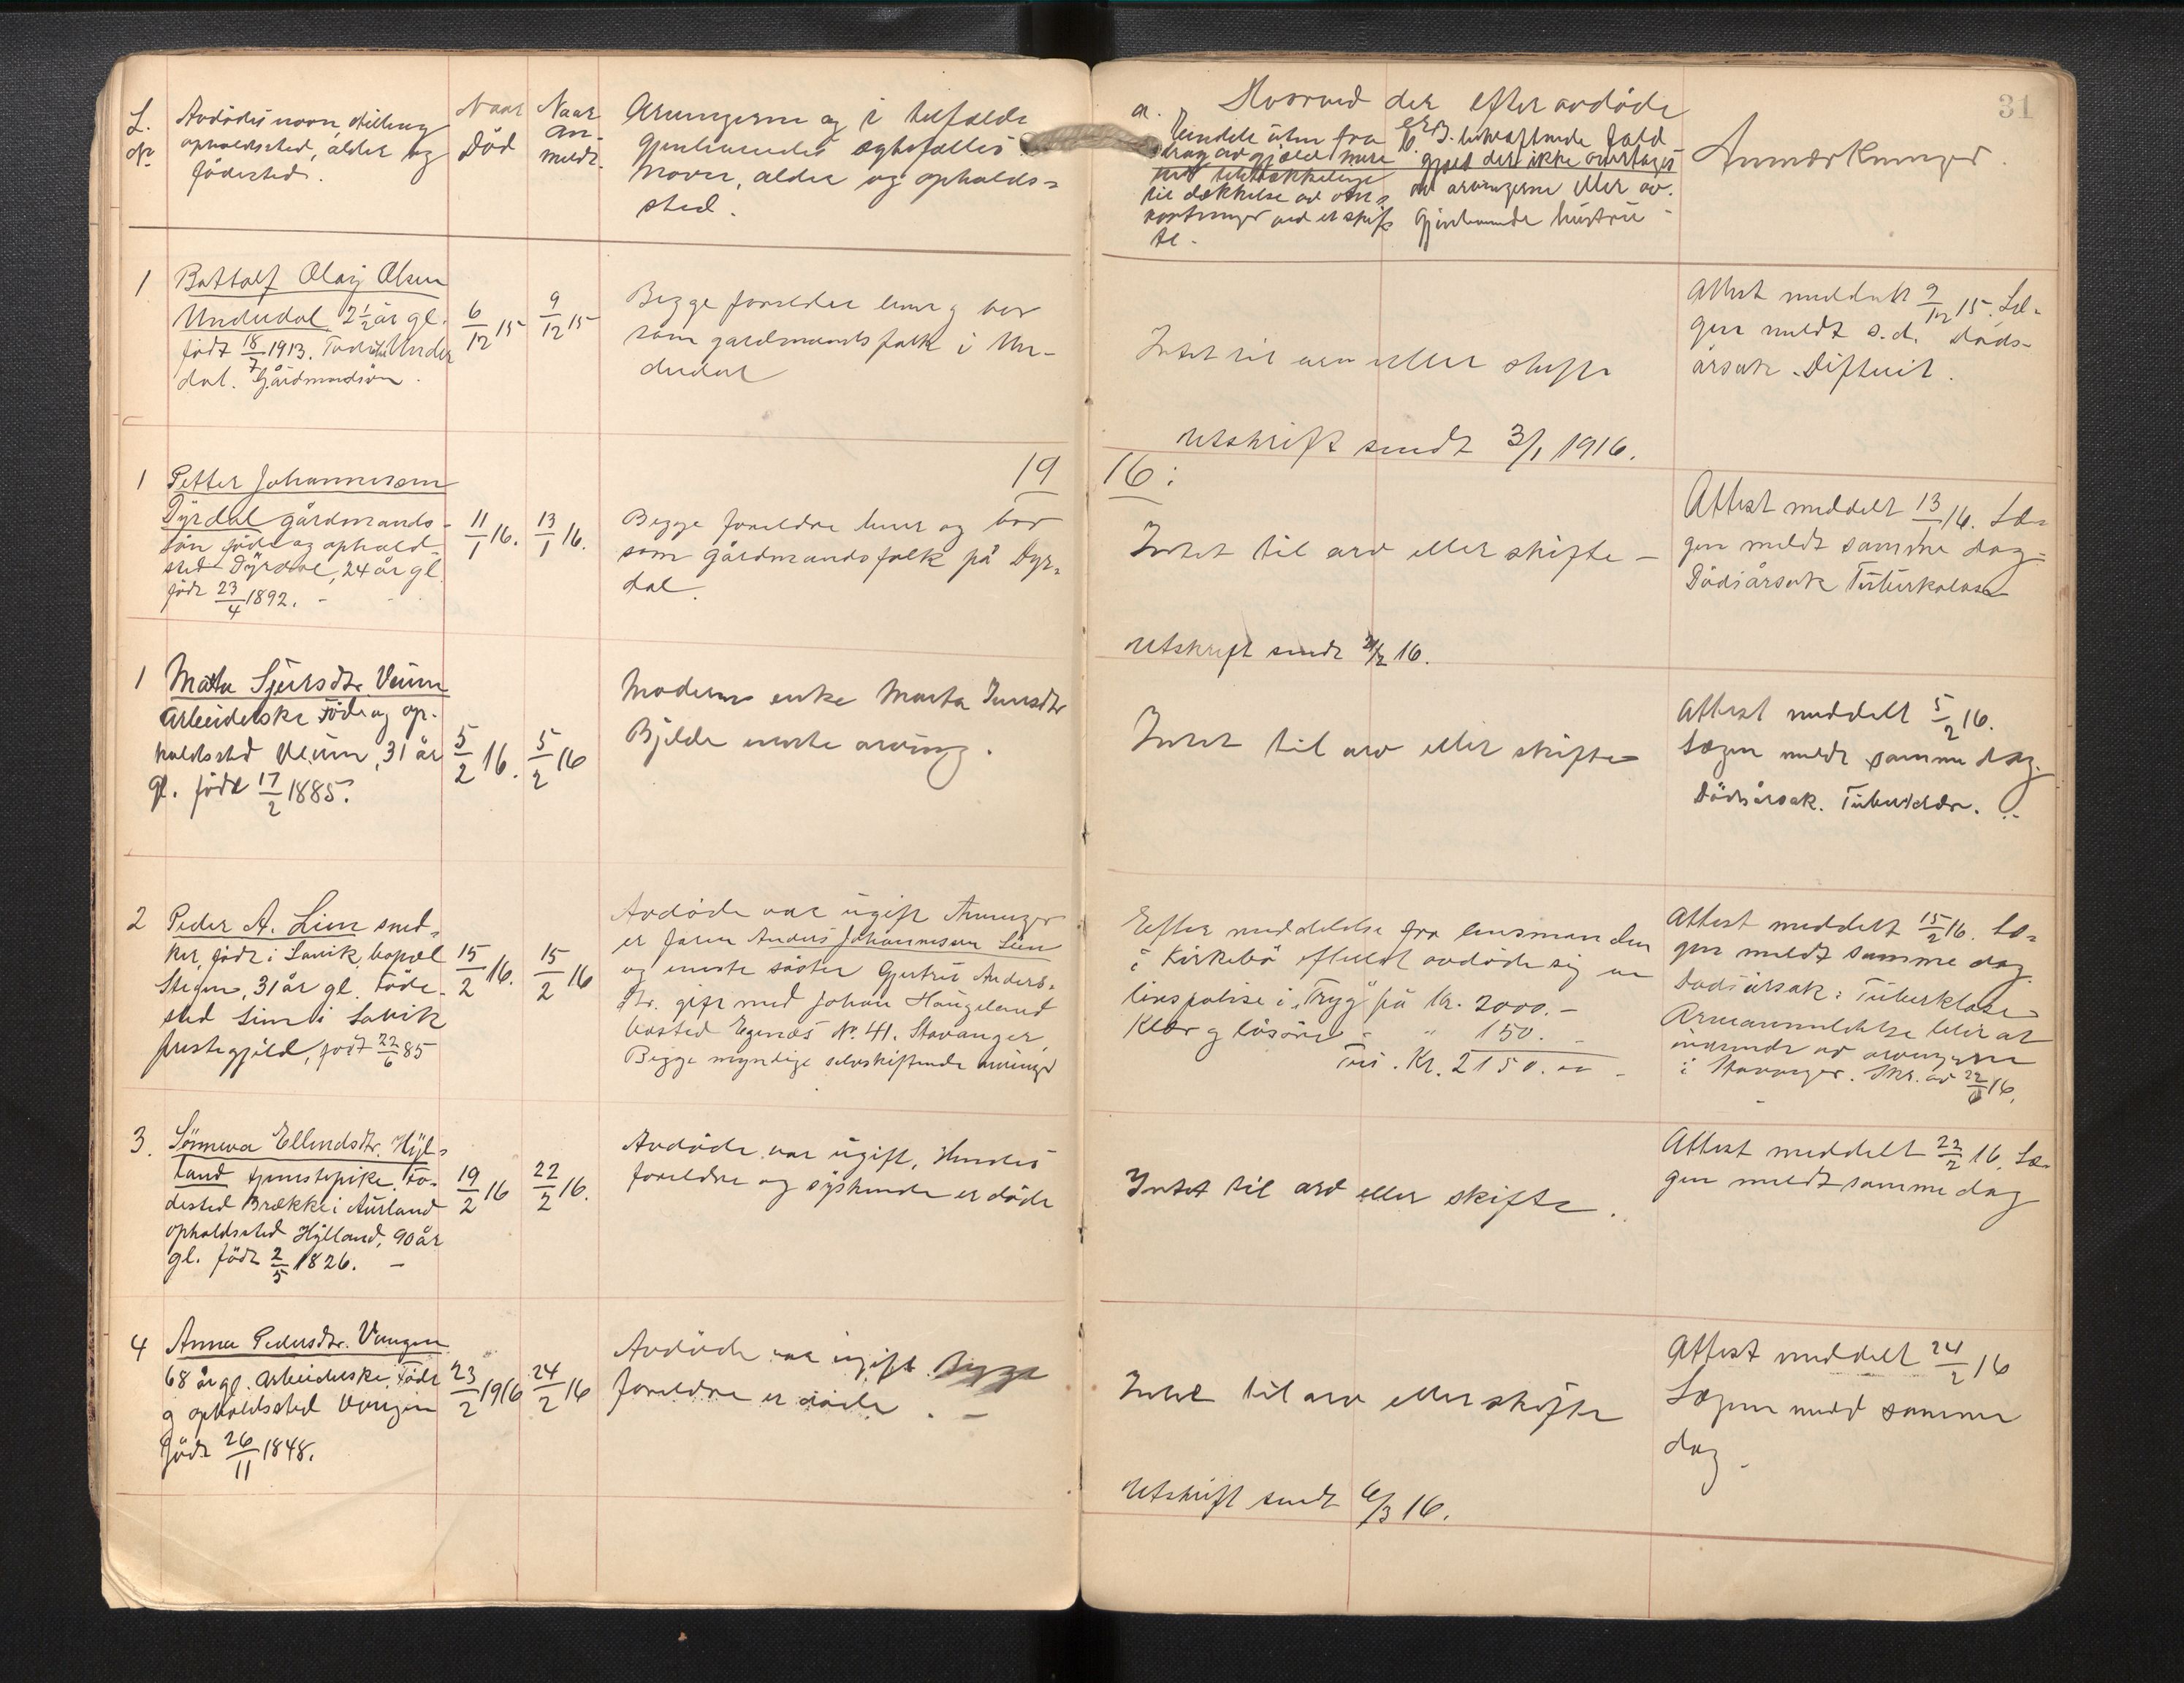 L.
No
Avdødes navn, stilling
opholdssted, alder og
fødested.
Naar
Død
Naar
an-
meldt.
Arvingerne og i tilfælde
gjenlevendes ægtefælles
navn, alder og opholds-
sted.
a. Hvorved der efter avdøde
til dækkelse ad om-
kostninger ved et skif-
te.
gjæld der ikke overtages
av arvingerne eller av
gjenlevende hustru -
Anmærkninger.
31
1
Battolf Olai Olsen
Underdal 2½ år gl.
født 18/7 1913. Under
dal. Gårdmandsøn.
6/12 15
9/12 15
Begge foreldre lever g bor
som gardmandsfolk i Un-
derdal
Intet til arv eller skifte
Attest meddelt 9/12 15. Læ-
gen meldt s.d. Døds-
årsak. Difterit.
Utskrift sendt 3/1 1916.
1916:
1
Petter Johannesen
Dyrdal gårdmands-
søn føde og ophold-
sted Dyrdal, 24 år gl
født 23/4 1892. -
11/1 16.
13/1 16.
Begge foreldre lever og bor
som gårdmandsfolk på Dyr-
dal.
Intet til arv eller skifte -
Attest meddelt 13/1 16. Læ-
gen meldt samme dag-
Dødsårsak Tuberkolose
Utskrift sendt 3/2 16.
1
Marta Sjursdtr. Veum
Arbeiderske Føde og op-
holdssted Veum, 31 år
gl. født 17/2 1885.
5/2 16.
5/2 16
Moderen enke Marta Iversdtr
Bjelde eneste arving.
Intet til arv eller skifte
Attest meddelt 5/2 16.
Lægen meldt samme dag.
Dødsårsak.
2
Peder A. Lien sned-
ker, født i Lavik, bopæl
Stegen, 31 år gl. Føde-
sted Lien i Lavik
prestegjeld, født 22/6 85
15/2 16.
15/2 16
Avdøde var ugift Arvinger
er faren Anders Johannesen Lien
og eneste søster Gjertrud Anders-
dtr. gift med Johan Haugeland
bosted Egenæs No. 41. Stavanger
Begge myndige selvskiftende arvinger
Efter meddelelse fra lensmanden
i Kirkebø efterlot avdøde sig en
livspolise i "Tryg" på Kr. 2000. -
Klær g løsøre - " 150. -
Kr. 2150. 00 -
Attest meddelt 15/2 16. Læ-
gen meldt samme dag.
Dødsårsak: Tuberklose
Arveanmeldelse blir at
indsende av arvingerne
i Stavanger. Skr. av 22/6 16.
3.
Sønneva Ellendsdtr. Hyl-
land tjenestepike. Fø-
dested Brække i Aurland
opholdssted Hylland, 90 år
gl. født 2/5 1826. -
19/2 16
22/2 16.
Avdøde var ugift, Hendes
foreldre og syskende er døde
Intet til arv eller skifte.
Attest meddelt 22/2 16. Læ-
gen meldt samme dag
4
Anna Pedersdtr. Vangen
68 år gl. arbeiderske. Føde
g opholdssted Vangen
født 26/11 1848.
23/2 1916
24/2 16
Avdøde var ugift. Begge
foreldre er døde. -
Intet til arv eller skifte
Attest meddelt 24/2 16
Lægen meld samme
dag.
Utskrift sendt 6/3 16.